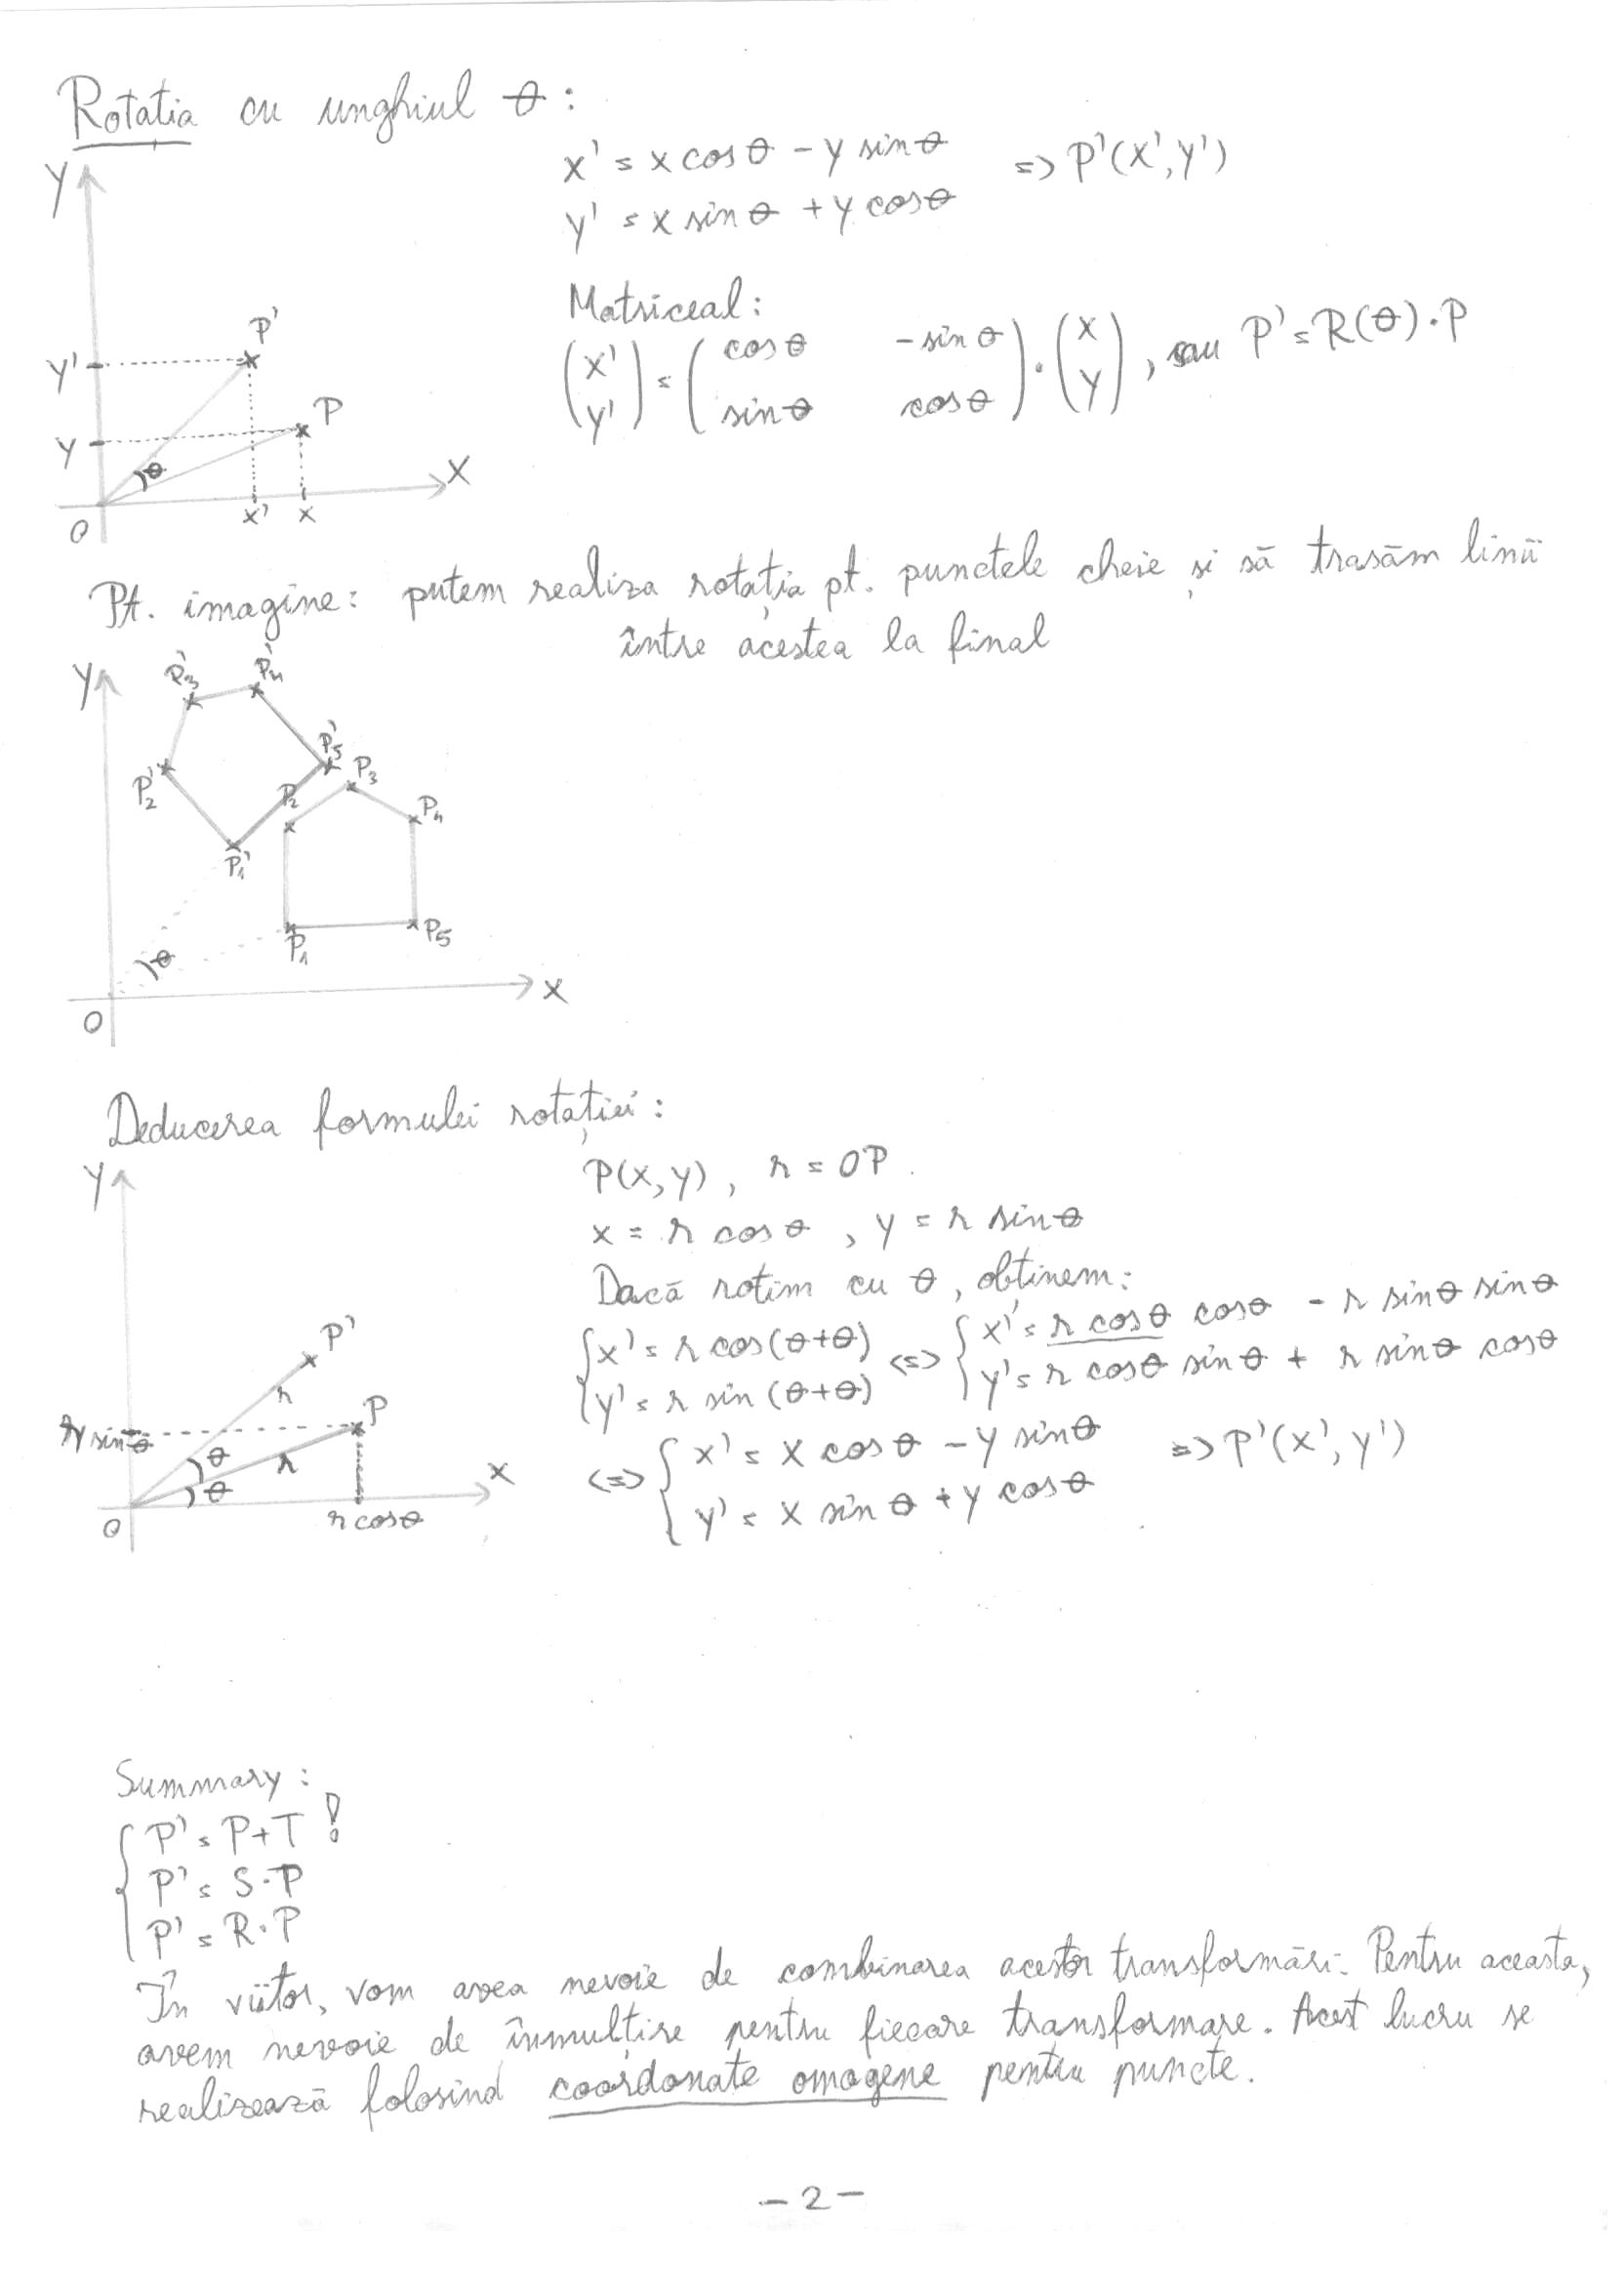 Rotatia cu unghiul θ:
x' = x cosθ - y sinθ => P'(x', y')
y' = x sinθ + y cosθ
Matriceal:
(x' y') = (cosθ -sinθ sinθ cosθ) · (x y), sau P' = R(θ) · P
Y
P'
Y'
P
Y
θ
X
O
x'
x
Pt. imagine: putem realiza rotația pt. punctele cheie și să trasăm linii
între acestea la final
Y
P3'
P4'
P5'
P3
P2'
P2
P4
P1'
P1
P5
θ
X
O
Deducerea formulei rotației:
P(x, y), r = OP.
x = r cosθ, y = r sinθ
Dacă rotim cu θ, obtinem:
{ x' = r cos(θ+θ) <=> { x' = r cosθ cosθ - r sinθ sinθ
y' = r sin(θ+θ) y' = r cosθ sinθ + r sinθ cosθ
<=> { x' = x cosθ - y sinθ => P'(x', y')
y' = x sinθ + y cosθ
Y
P'
r
P
r sinθ
θ
r
θ
X
O
r cosθ
Summary:
{ P' = P+T !
P' = S·P
P' = R·P
În viitor, vom avea nevoie de combinarea acestor transformări. Pentru aceasta,
avem nevoie de înmulțire pentru fiecare transformare. Acest lucru se
realizează folosind coordonate omogene pentru puncte.
- 2 -